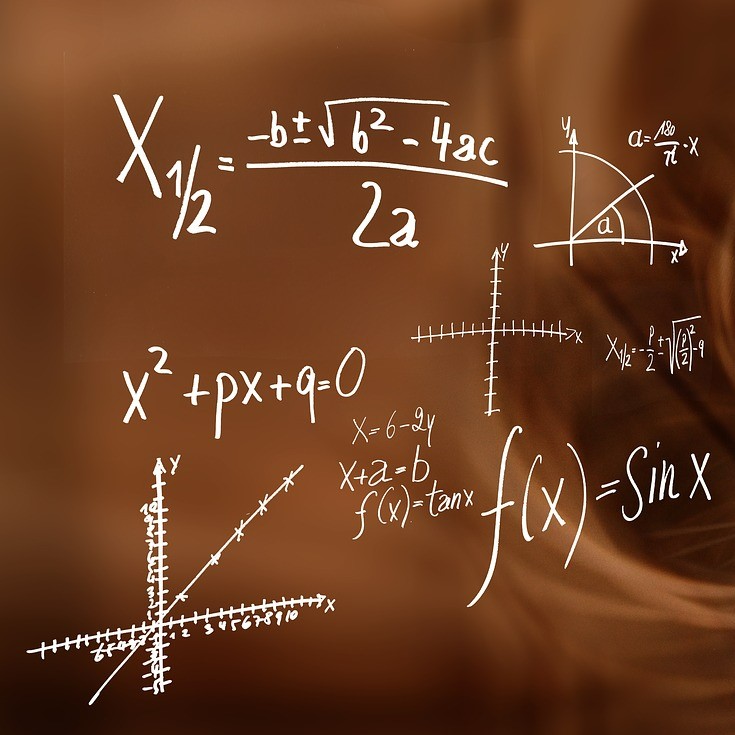 X₁/₂ = (-b ± √(b² - 4ac)) / 2a
y
a = 180/π · x
a
x
y
x
X₁/₂ = -p/2 ± √((p/2)² - q)
x² + px + q = 0
x = 6 - 2y
x + a = b
f(x) = tanx
f(x) = Sin x
y
10
x
1 2 3 4 5 6 7 8 9 10